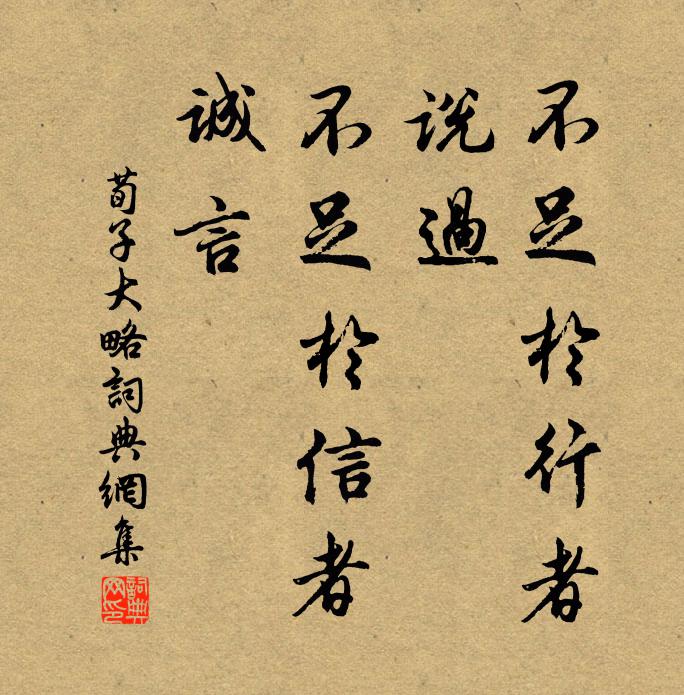 不足於行者
説過
不足於信者
誠言
荀子大略詞典網集
詞典网印